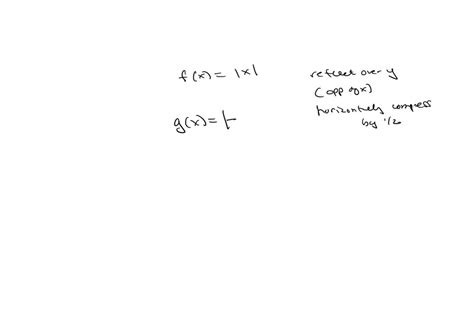 f(x) = |x|
reflect over y
(opp of x)
horizontally compress
by 1/20
g(x) = |-